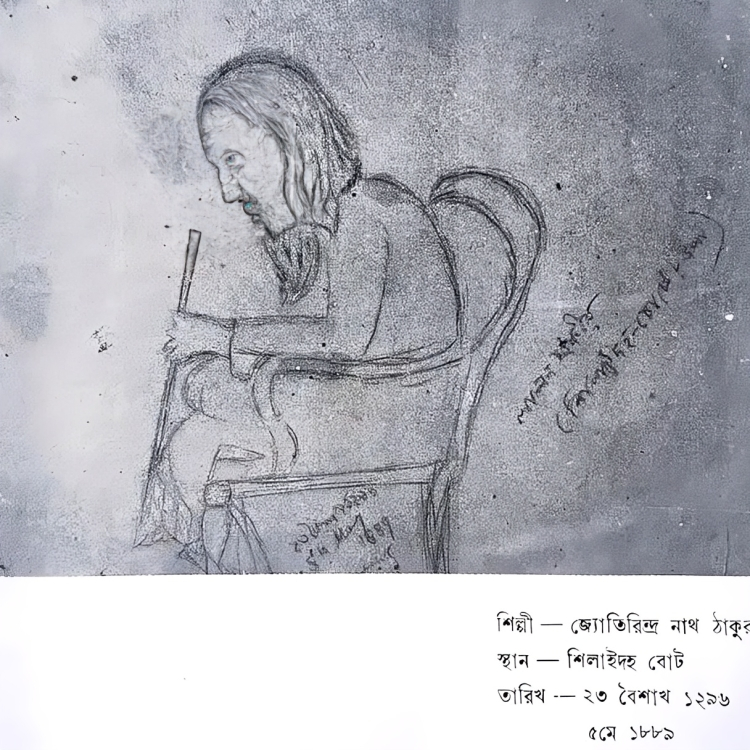 লালন ফকীর
(শিলাইদহ-বোটের উপর)
5th May 1889
শিল্পী — জ্যোতিরিন্দ্র নাথ ঠাকুর
স্থান — শিলাইদহ বোট
তারিখ — ২৩ বৈশাখ ১২৯৬
৫মে ১৮৮৯